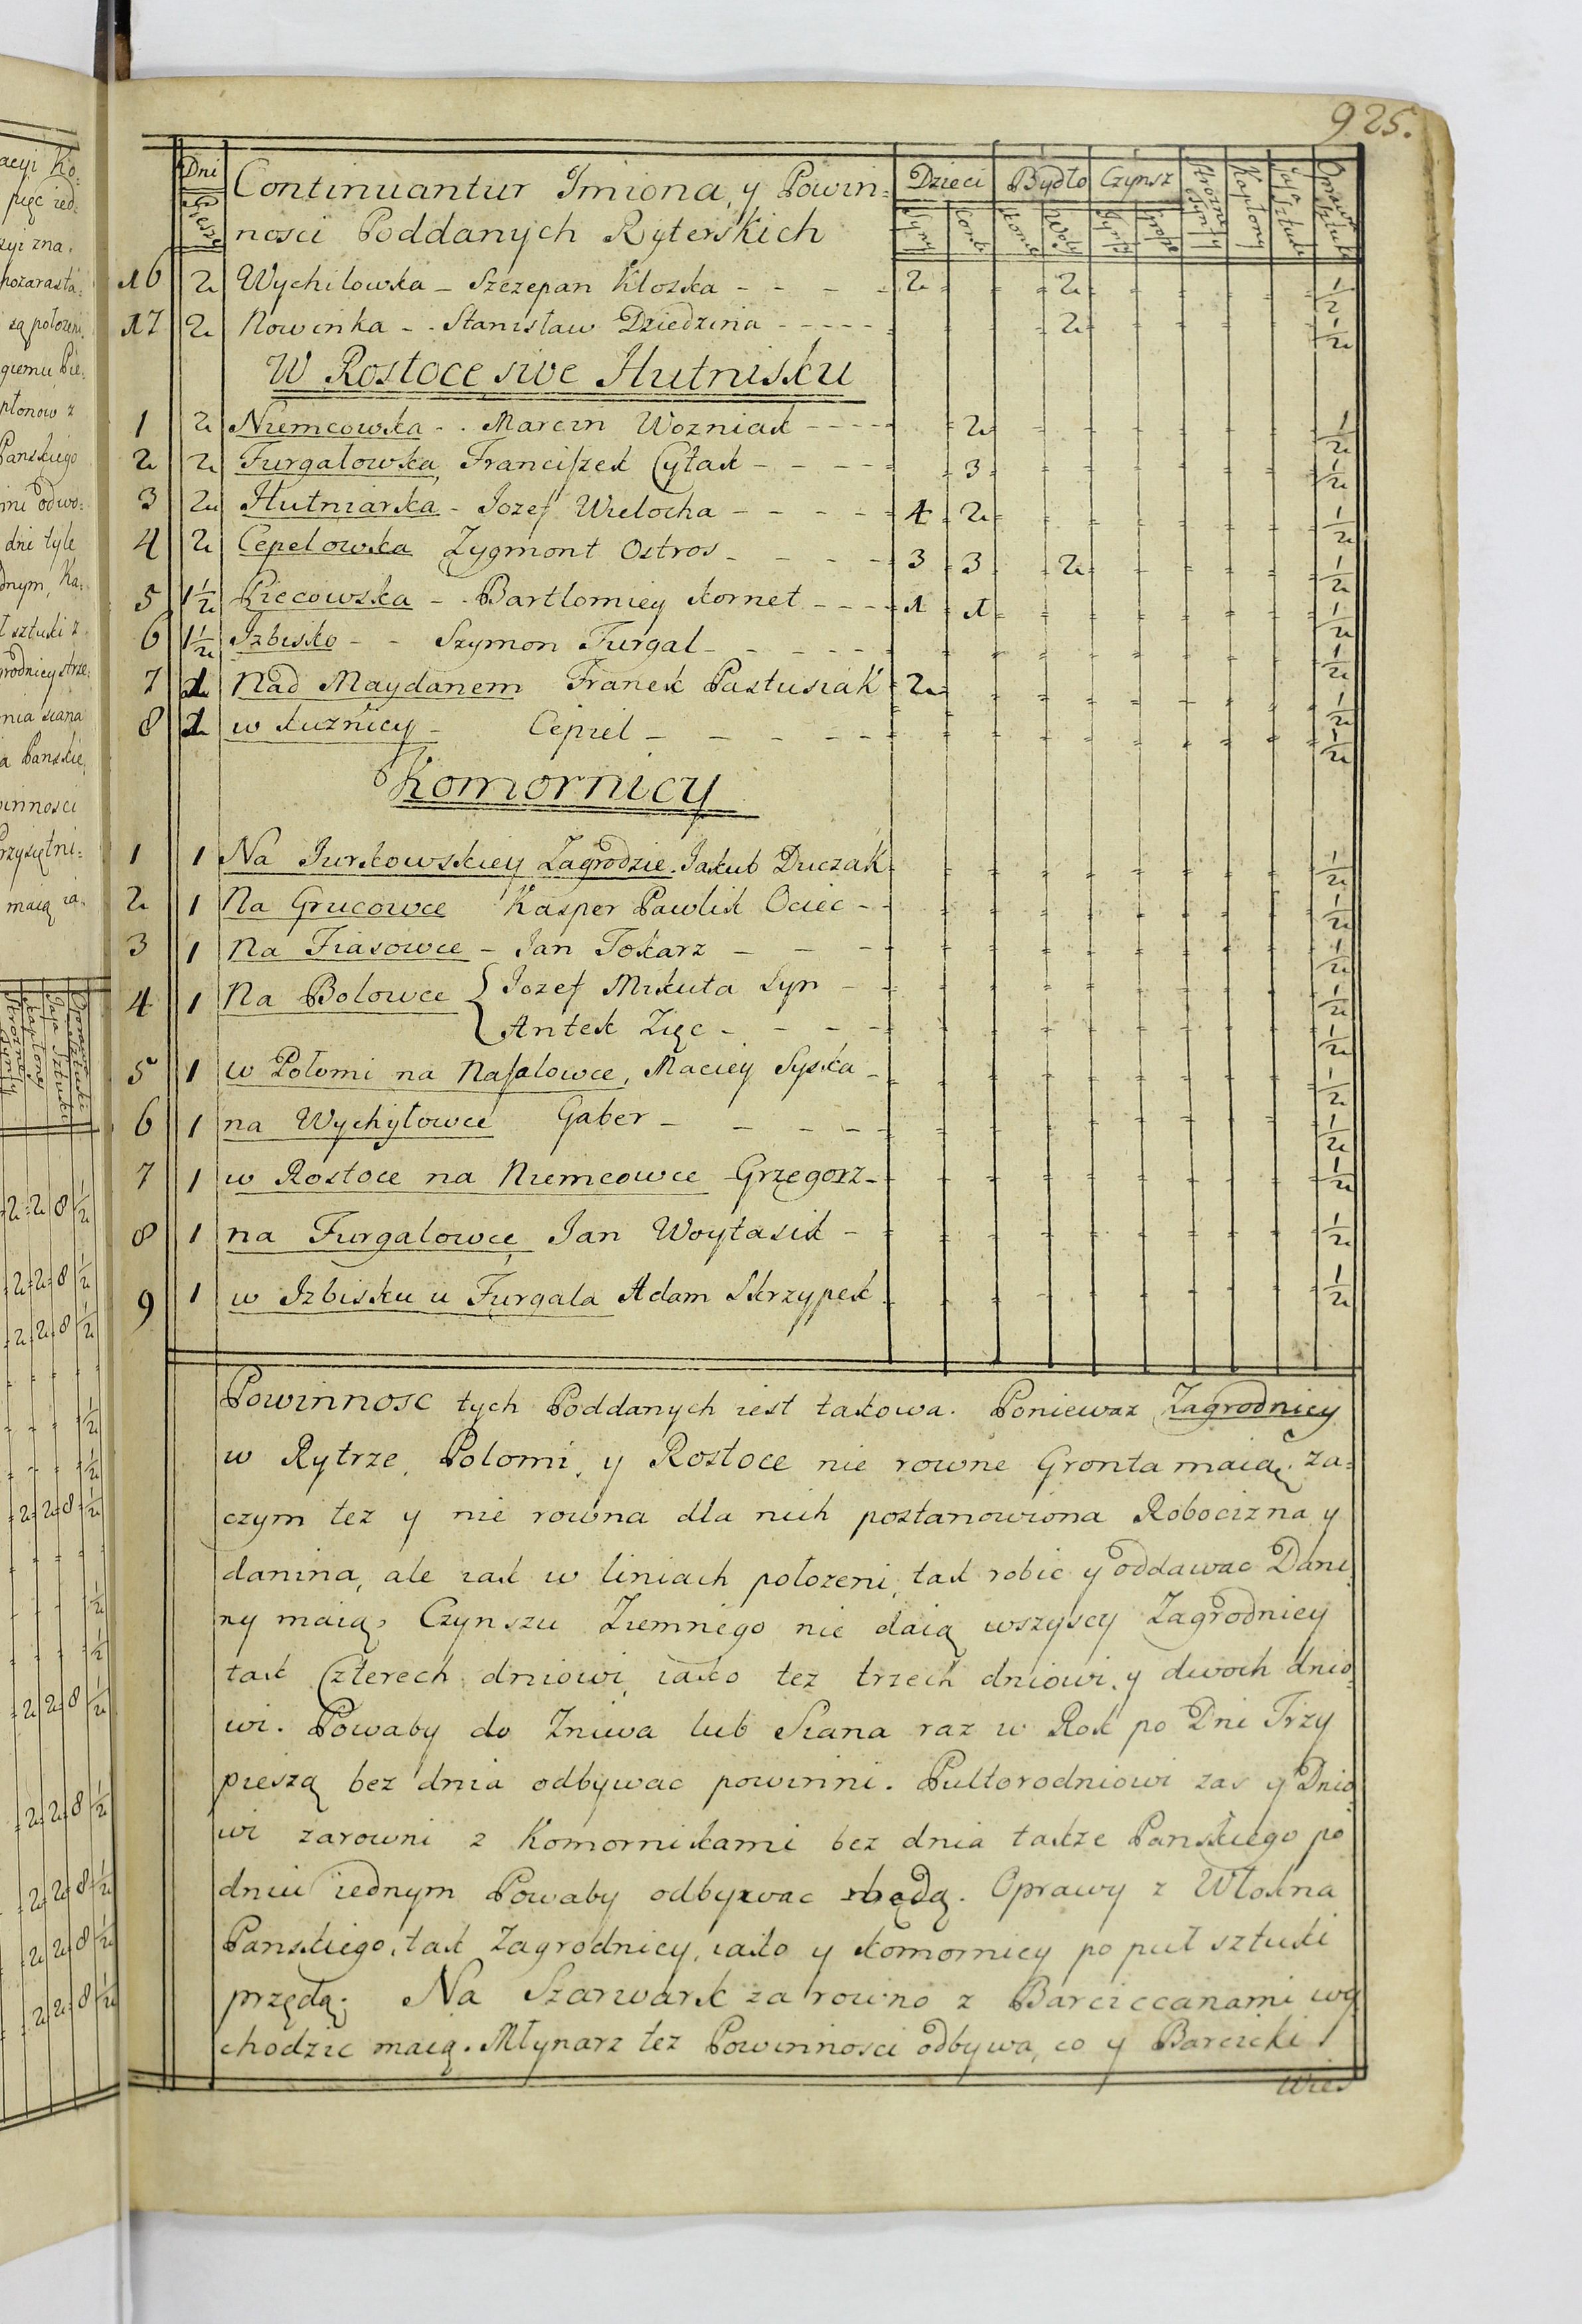 925.
Dni Piesze Continuantur Imiona, y Powin= Dzieci Bydło Czynsz Strozne Gynty Kapłony Jaja Sztuk Opraw Sztuki
nosci Poddanych Ryterskich Syny Corki Konie Woły Zł grosze
16 2 Wychilowska - Szczepan Kloska - - - - 2 2 1/2
17 2 Nowinka - - Stanisław Dziedzina - - - - - 2 1/2
W Rostoce sive Hutnisku
1 2 Niemcowska - . Marcin Wozniak - - - - 2 1/2
2 2 Furgalowska, Franciszek Cyłak - - - - 3 1/2
3 2 Hutniarska - Jozef Wielocha - - - - - 4 2 1/2
4 2 Cepelowska Zygmont Ostros - - - - 3 3 2 1/2
5 1 1/2 Piecowska - . Bartlomiey kornet - - - - 1 1 1/2
6 1 1/2 Izbisko - - Szymon Furgal - - - - - 1/2
7 1 Nad Maydanem Franek Pastusiak 2 1/2
8 1 w kuznicy - Cepiel - - - - - - 1/2
Komornicy
1 1 Na Jurkowskiey Zagrodzie. Jakub Duczak 1/2
2 1 Na Grucowce Kasper Pawlik Ociec - - 1/2
3 1 Na Fiasowce - Jan Tokarz - - - 1/2
4 1 Na Bolowce { Jozef Mikuta Syn - - 1/2
Antek Zięc - - - - 1/2
5 1 w Połomi na Nasalowce, Maciey Syska - 1/2
6 1 na Wychyłowce Gaber - - - - - 1/2
7 1 w Rostoce na Niemcowce Grzegorz - 1/2
8 1 na Furgalowce Jan Woytasik - 1/2
9 1 w Izbisku u Furgala Adam Skrzypek 1/2
Powinnosc tych Poddanych iest takowa. Poniewaz Zagrodnicy
w Rytrze, Polomi, y Rostoce nie rowne Gronta maią, za=
czym tez y nie rowna dla nich postanowiona Robocizna y
danina, ale iak w liniach położeni, tak robic y oddawac Dani
ny maią, Czynszu Ziemnego nie daią wszyscy Zagrodnicy
tak Czterech dniowi, iako tez trzech dniowi, y dwoch dnio
wi. Powaby do Zniwa lub Siana raz w Rok po Dni Trzy
pieszą bez dnia odbywac powinni. Pułtorodniowi zas y Dnio
wi zarowni z Komornikami bez dnia takze Panskiego po
dniu iednym Powaby odbywac będą. Oprawy z Włokna
Panskiego, tak Zagrodnicy, iako y komornicy po puł sztuki
przędą. Na Szarwark za rowno z Barciccanami wy
chodzic maią. Młynarz tez Powinnosci odbywa, co y Barcicki.
Wies